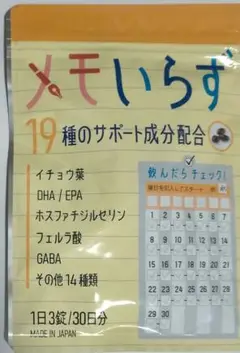 メモいらず
19種のサポート成分配合
イチョウ葉
DHA / EPA
ホスファチジルセリン
フェルラ酸
GABA
その他14種類
飲んだらチェック!
1 2 3 4 5 6 7
8 9 10 11 12 13 14
15 16 17 18 19 20 21
22 23 24 25 26 27 28
29 30
1日3錠/30日分
MADE IN JAPAN